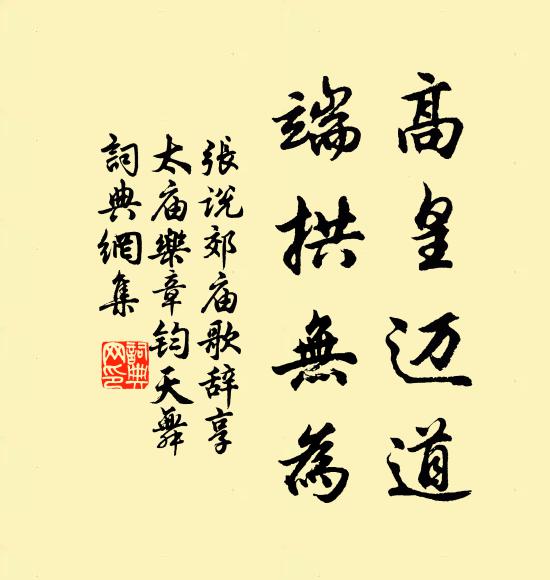 高皇迈道
端拱無為
張说郊庙歌辞享
太庙樂章鈞天舞
詞典網集
詞典
网印